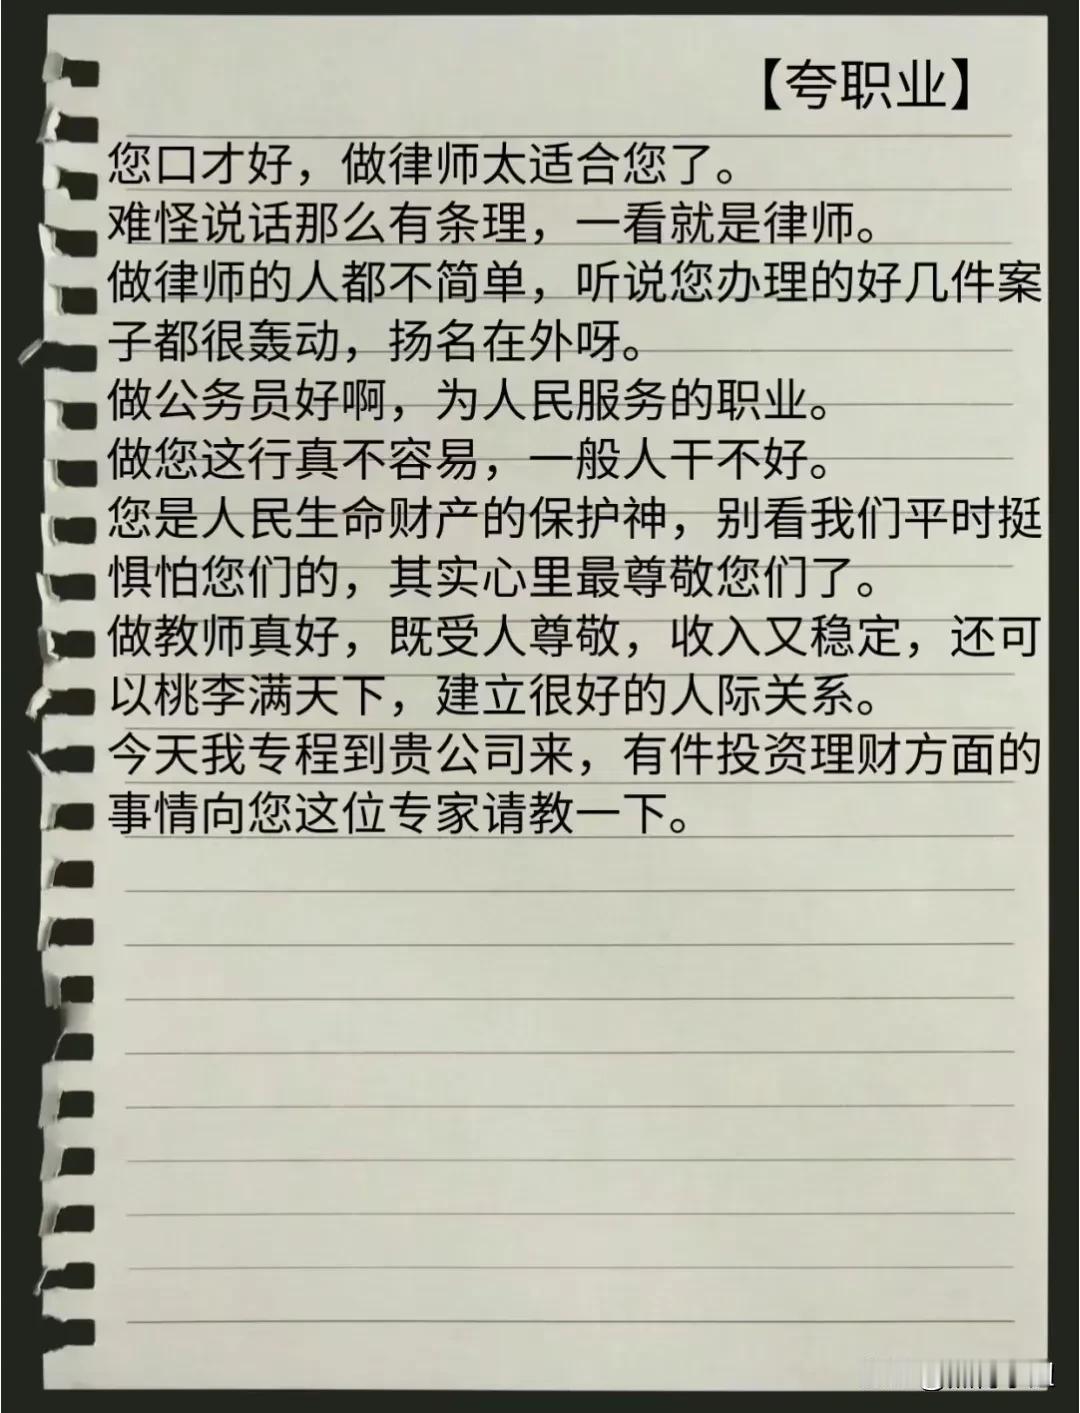 【夸职业】
您口才好，做律师太适合您了。
难怪说话那么有条理，一看就是律师。
做律师的人都不简单，听说您办理的好几件案
子都很轰动，扬名在外呀。
做公务员好啊，为人民服务的职业。
做您这行真不容易，一般人干不好。
您是人民生命财产的保护神，别看我们平时挺
惧怕您们的，其实心里最尊敬您们了。
做教师真好，既受人尊敬，收入又稳定，还可
以桃李满天下，建立很好的人际关系。
今天我专程到贵公司来，有件投资理财方面的
事情向您这位专家请教一下。